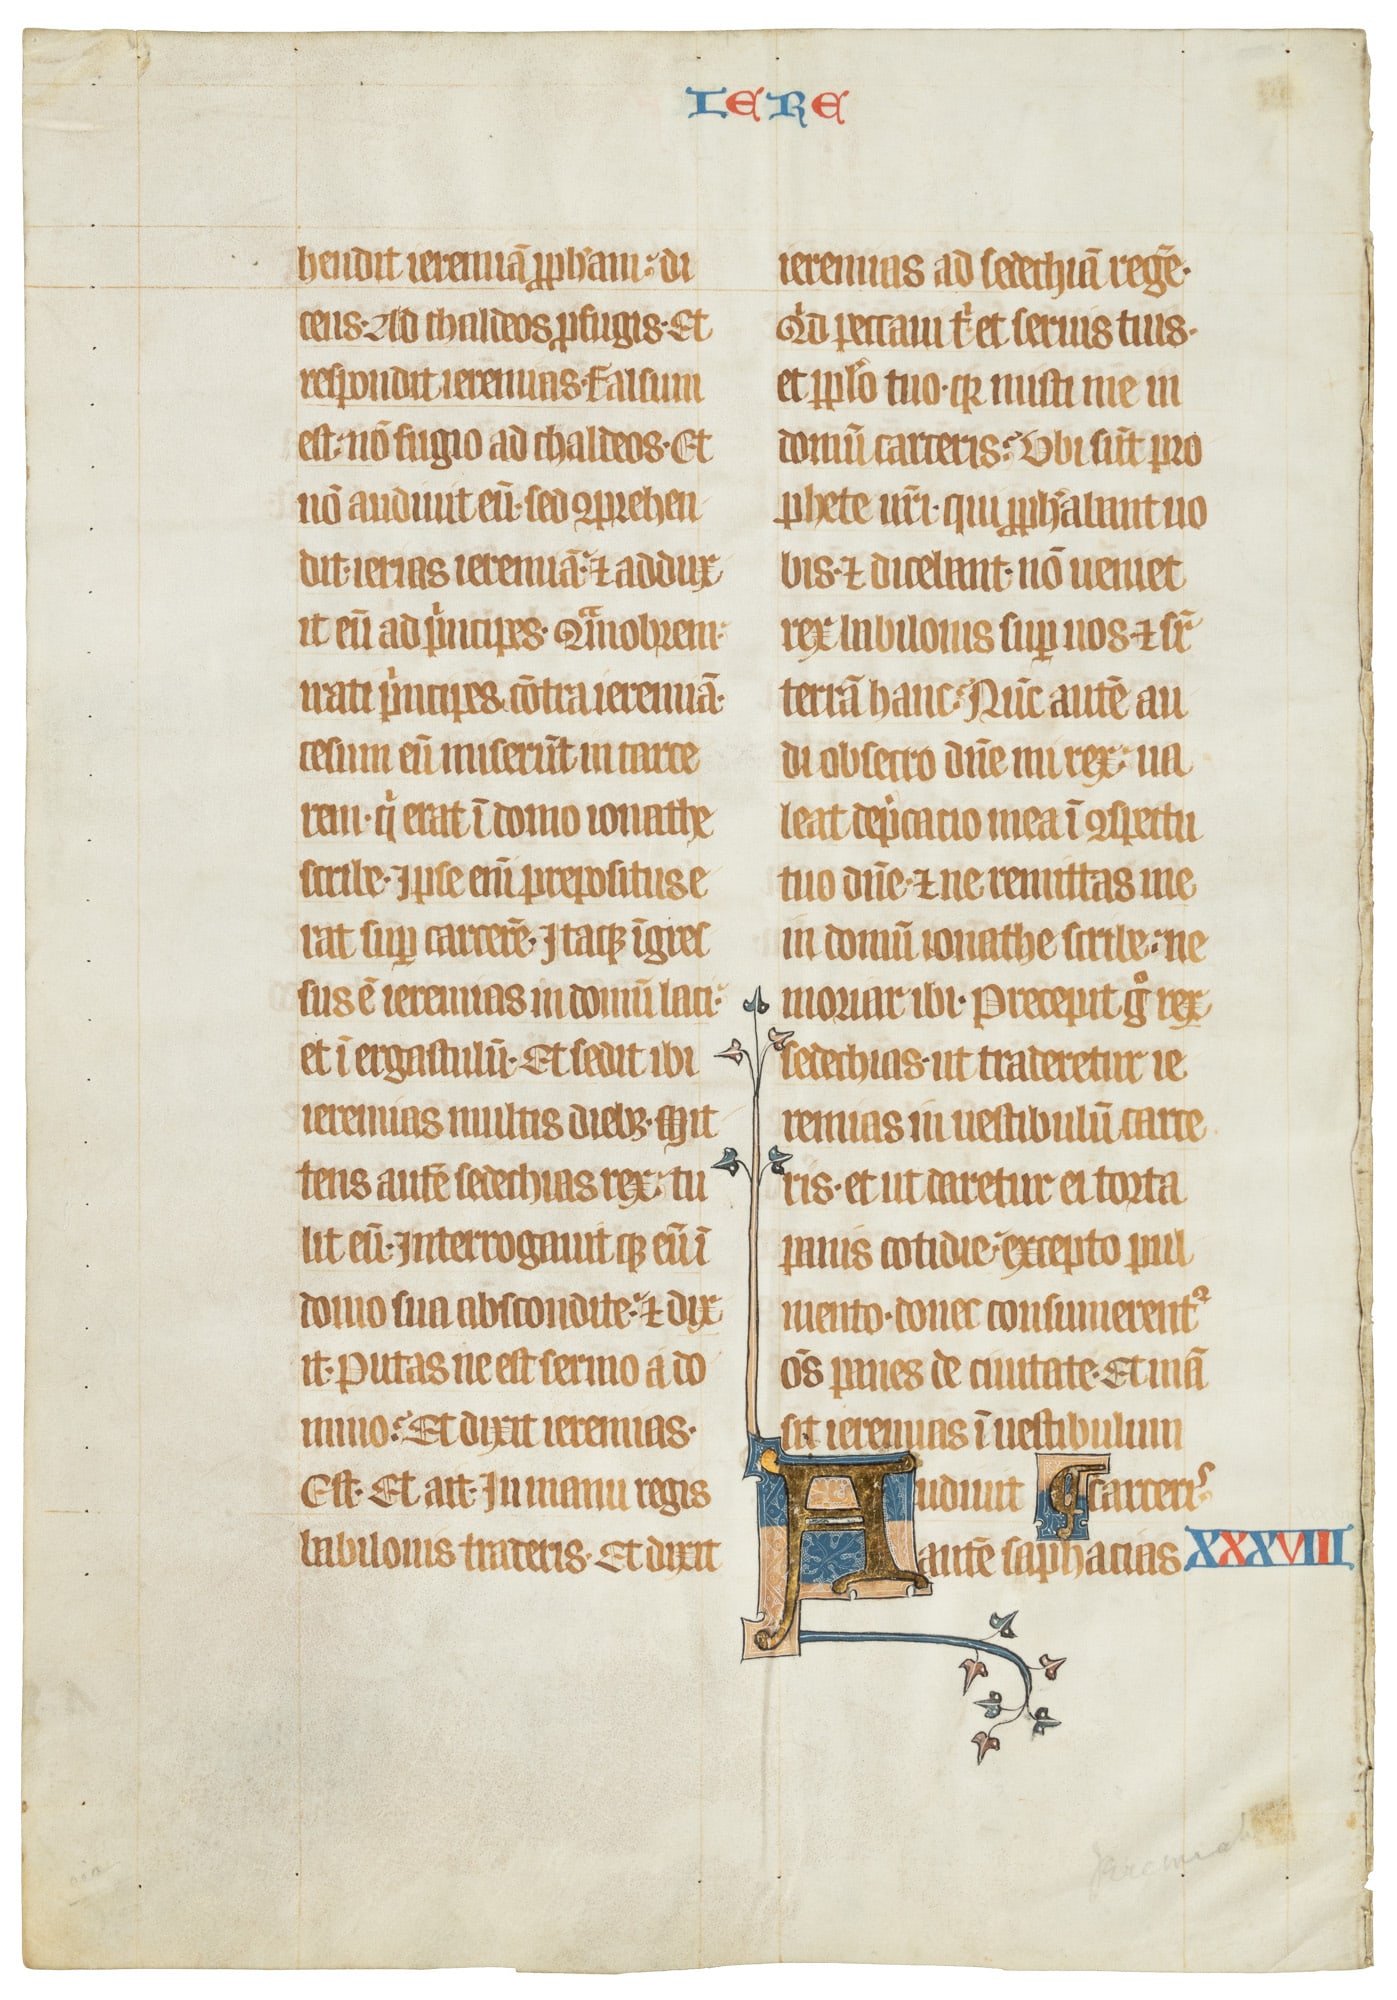 IERE
hendit ieremiā ꝓph̄am: di
cens· Ad chaldeos ꝓfugis· Et
respondit ieremias· Falsum
est: nō fugio ad chaldeos· Et
nō audiuit eū· sed ꝯprehen
dit· ierias ieremiā: ⁊ addux
it eū ad pͥncipes· Qͣmobrem·
irati pͥncipes cōtra ieremiā·
cesum eū miserūt in carce
rem· qͥ erat ī domo ionathe
scribe· Ipse enī prepositus e
rat suꝑ carcerē· Itaqꝫ īgres
sus ē ieremias in domū laci:
et ī ergastulū· Et sedit ibi
ieremias multis diebꝫ· Mit
tens autē sedechias rex: tu
lit eū· Interrogauit qꝫ eū ī
domo sua abscondite: ⁊ dix
it· Putas ne est sermo a do
mino: Et dixit ieremias·
Est· Et ait· In manu regis
babilonis traderis· Et dixit
ieremias ad sedechiā regē·
Qͥd peccaui tͥ et seruis tuis·
et ppl̄o tuo· qꝫ misisti me in
domū carceris: Ubi sūt pro
phete ur̄i· qui ꝓph̄abant uo
bis· ⁊ dicebant· nō ueniet
rex babilonis suꝑ uos· ⁊ sr̄
terrā hanc: Nūc autē au
di obsecro dn̄e mi rex: ua
leat dep̄catio mea ī ꝯspectu
tuo dn̄e· ⁊ ne remittas me
in domū ionathe scribe: ne
moriar ibi· Precepit gͦ rex
sedechias· ut traderetur ie
remias in uestibulū carce
ris· et ut daretur ei torta
panis cotidie: excepto pul
mento· donec consumerentᷣ
ōs panes de ciuitate· Et mā
sit ieremias ī uestibulum
Audiuit ¶ carceris
autē saphacias XXXVIII
Jeremiah